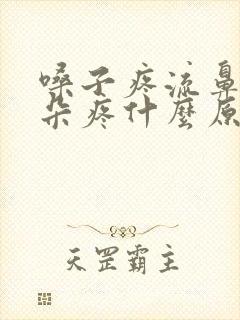 嗓子疼流鼻
朵疼什麼原
天罡霸主